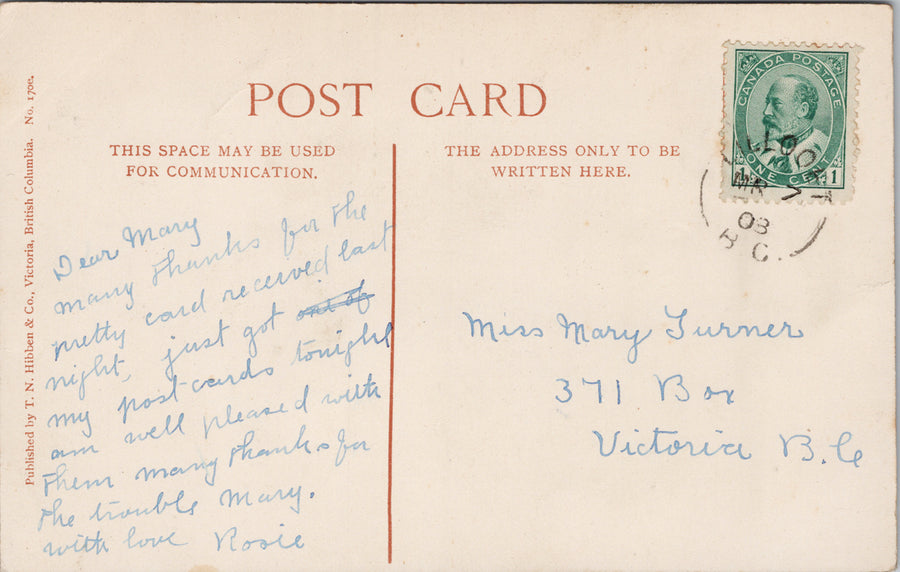 POST CARD
THIS SPACE MAY BE USED
FOR COMMUNICATION.
THE ADDRESS ONLY TO BE
WRITTEN HERE.
Published by T. N. Hibben & Co., Victoria, British Columbia. No. 170e.
CANADA POSTAGE
ONE CENT
1
MR
08
B.C.
Dear Mary
many thanks for the
pretty card received last
night, just got out of
my post-cards tonight
am well pleased with
them many thanks for
the trouble Mary.
with love Rosie
Miss Mary Turner
371 Box
Victoria B.C